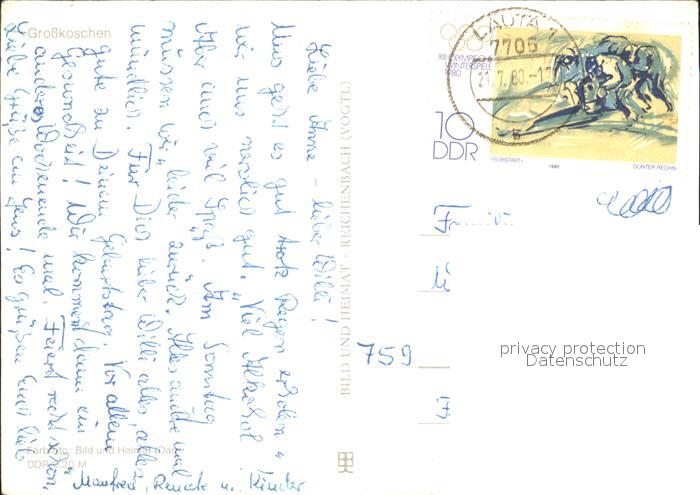 Großkoschen
Liebe Anne – lieber Willi!
Uns geht es gut trotz Regen erholen
wir uns herzlich gut. „Viel Alkohol
Aber und viel Spaß. Am Sonntag
müssen wir „leider zurück. Alles andre mal
mündlich. Für Dich lieber Willi alles alles
gute zu Deinem Geburtstag. Vor allem
Gesundheit! Wir kommen dann ein
andres Wochenende mal. Feiert recht schön.
Liebe Grüße an Jens! Es grüßen Euch lieb
Manfred, Renate u. Kinder
Farbfoto: Bild und Heimat
DDR 0,20 M
BILD UND HEIMAT · REICHENBACH (VOGTL)
LAUTA 1
7705
21.7.80.-17
XIII. OLYMPISCHE
WINTERSPIELE
1980
10
DDR
»BOBSTART«
1980
GÜNTER RECHN
759
privacy protection
Datenschutz